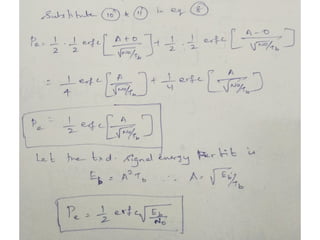 Substitute (10) & (11) in eq (8)
Pe = 1/2 · 1/2 erfc [ A+0 / √(N0/Tb) ] + 1/2 · 1/2 erfc [ A-0 / √(N0/Tb) ]
= 1/4 erfc [ A / √(N0/Tb) ] + 1/4 erfc [ A / √(N0/Tb) ]
Pe = 1/2 erfc [ A / √(N0/Tb) ]
Let the txd. signal energy per bit is
Eb = A² Tb ∴ A = √(Eb/Tb)
Pe = 1/2 erfc √(Eb/N0)